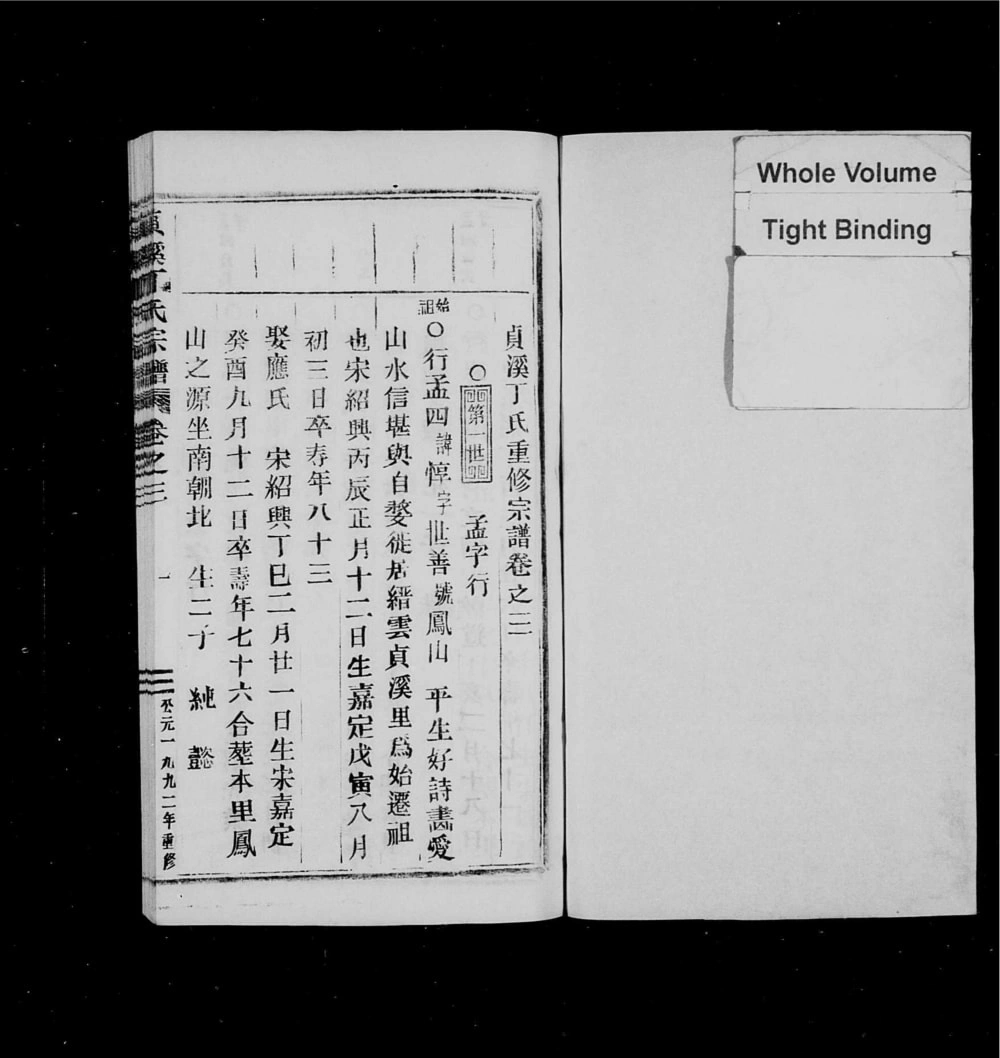 Whole Volume
Tight Binding
貞溪丁氏重修宗譜卷之三
○第一世 孟字行
始祖○行孟四諱惇字世善號鳳山 平生好詩畵愛
山水信堪與自婺徙居縉雲貞溪里爲始遷祖
也宋紹興丙辰正月十二日生嘉定戊寅八月
初三日卒寿年八十三
娶應氏 宋紹興丁巳二月廿一日生宋嘉定
癸酉九月十二日卒壽年七十六合塟本里鳳
山之源坐南朝北 生二子 純 懿
貞溪丁氏宗譜 卷之三 一 公元一九九二年重修